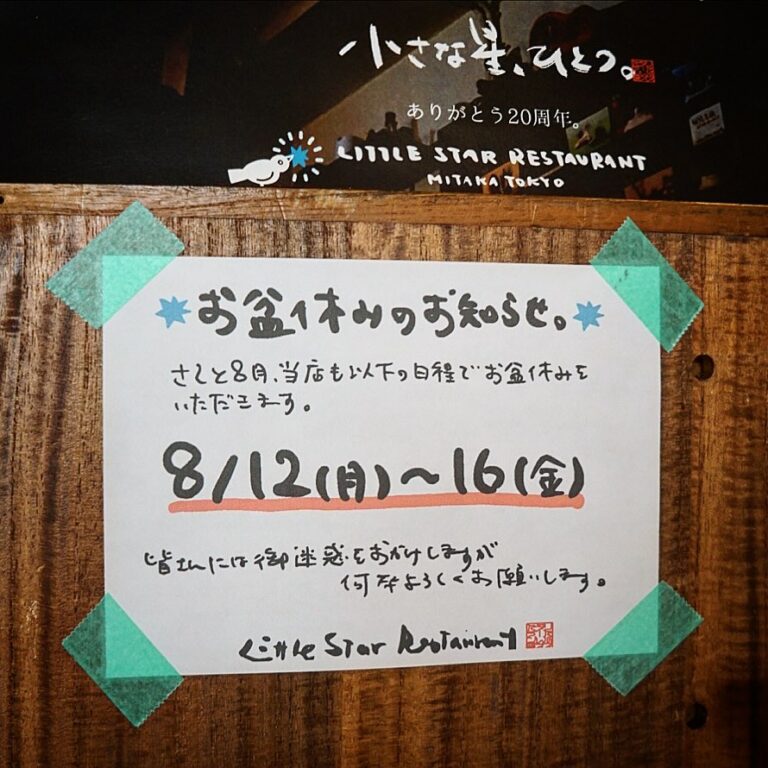 小さな星、ひとつ。
ありがとう20周年。
LITTLE STAR RESTAURANT
MITAKA TOKYO
お盆休みのお知らせ。
さてと8月、当店も以下の日程でお盆休みを
いただきます。
8/12(月)～16(金)
皆さんには御迷惑をおかけしますが
何卒よろしくお願いします。
Little Star Restaurant